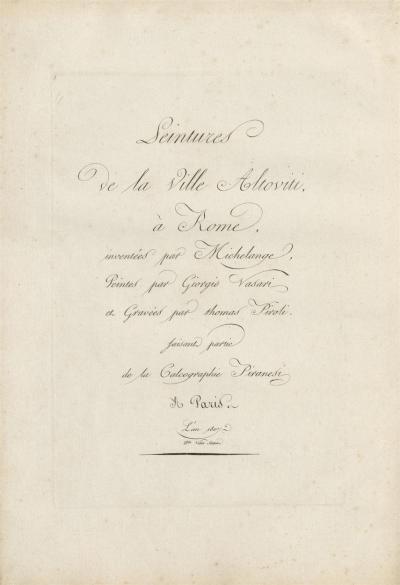 Peintures
de la Ville Altoviti,
à Rome,
inventées par Michelange,
Peintes par Giorgio Vasari
et Gravées par thomas Piroli.
faisant partie
de la Calcographie Piranesi
A Paris.
L'an 1807